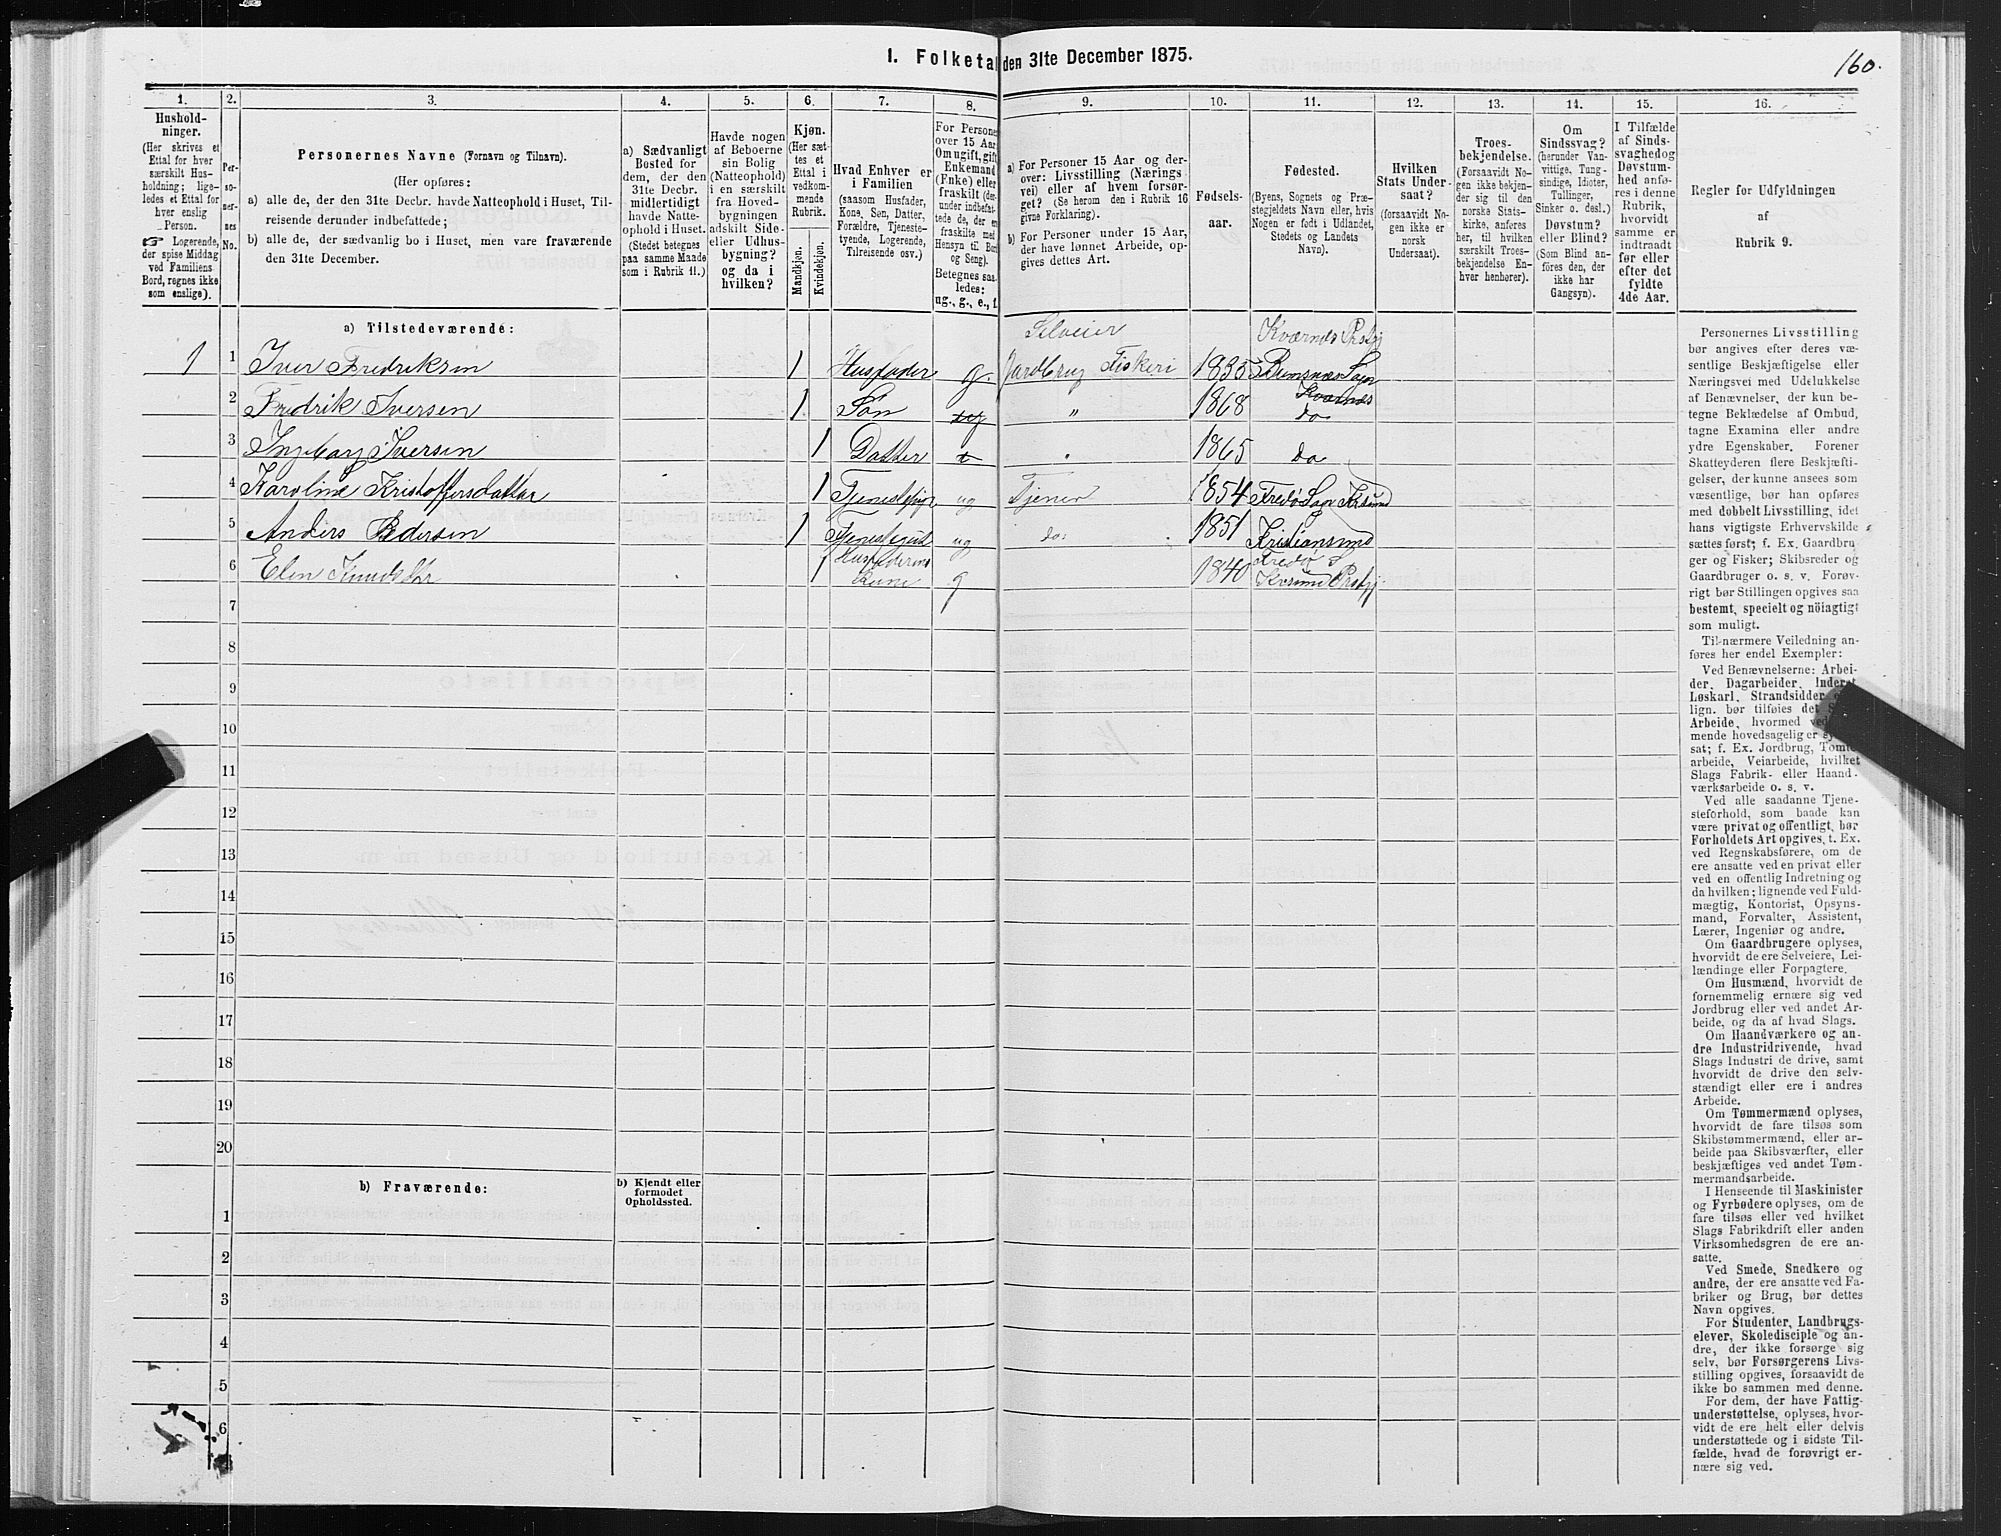 1. Folketal den 31te December 1875.
160.
1. 2. 3. 4. 5. 6. 7. 8. 9. 10. 11. 12. 13. 14. 15. 16.
Hushold-
ninger.
(Her skrives et
Ettal for hver
særskilt Hus-
holdning; lige-
ledes et Ettal for
hver enslig
Person.
☞ Logerende,
der spise Middag
ved Familiens
Bord, regnes ikke
som enslige).
Per-
so-
ner-
nes
No.
Personernes Navne (Fornavn og Tilnavn).
(Her opføres:
a) alle de, der den 31te Decbr. havde Natteophold i Huset, Til-
reisende derunder indbefattede;
b) alle de, der sædvanlig bo i Huset, men vare fraværende
den 31te December.
a) Sædvanligt
Bosted for
dem, der den
31te Decbr.
midlertidigt
havde Natte-
ophold i Huset.
(Stedet betegnes
paa samme Maade
som i Rubrik 11.)
Havde nogen
af Beboerne
sin Bolig
(Natteophold)
i en særskilt
fra Hoved-
bygningen
adskilt Side-
eller Udhus-
bygning?
og da i
hvilken?
Kjøn.
(Her sæt-
tes et
Ettal i
vedkom-
mende
Rubrik.
Mandkjøn.
Kvindekjøn.
Hvad Enhver er
i Familien
(saasom Husfader,
Kone, Søn, Datter,
Forældre, Tjeneste-
tyende, Logerende,
Tilreisende osv.)
For Personer
over 15 Aar:
Om ugift, gift,
Enkemand
(Enke) eller
fraskilt (der-
under indbefat-
tede de, der er
fraskilte med
Hensyn til Bord
og Seng).
Betegnes saa-
ledes:
ug., g., e., f.
a) For Personer 15 Aar og der-
over: Livsstilling (Nærings-
vei) eller af hvem forsør-
get? (Se herom den i Rubrik 16
givne Forklaring).
b) For Personer under 15 Aar,
der have lønnet Arbeide, op-
gives dettes Art.
Fødsels-
aar.
Fødested.
(Byens, Sognets og Præ-
stegjeldets Navn eller, hvis
Nogen er født i Udlandet,
Stedets og Landets
Navn).
Hvilken
Stats Under-
saat?
(forsaavidt No-
gen ikke er
norsk
Undersaat).
Troes-
bekjendelse.
(Forsaavidt No-
gen ikke bekjen-
der sig til den
norske Stats-
kirke, anføres
her, til hvilken
særskilt Troes-
bekjendelse En-
hver henhører).
Om
Sindssvag?
(herunder Van-
vittige, Tung-
sindige, Idioter,
Tullinger,
Sinker o. desl.)
Døvstum?
eller Blind?
(Som Blind an-
føres den, der
ikke har
Gangsyn).
I Tilfælde
af Sinds-
svaghed og
Døvstum-
hed anfø-
res i denne
Rubrik,
hvorvidt
samme er
indtraadt
før eller
efter det
fyldte
4de Aar.
Regler for Udfyldningen
af
Rubrik 9.
a) Tilstedeværende:
Selveier Kværnes Prstgj
1 1 Iver Fredriksen 1 Husfader g. Jordbrug Fiskeri 1835 Bremsnæs Sogn
Kværnes
2 Fredrik Iversen 1 Søn ug " 1868 do
3 Ingeborg Iversen 1 Datter 1865 do
4 Karoline Kristoffersdatter 1 Tjenestepige ug Tjener 1854 Fredø Sogn Krsund
5 Anders Pedersen 1 Tjenestegut ug do 1851 Kristiansund
6 Elen Knudsdtr 1 Husfaderens Kone g 1840 Fredø S Krsund Prstgj
7
8
9
10
11
12
13
14
15
16
17
18
19
20
b) Fraværende:
b) Kjendt eller
formodet
Opholdssted.
1
2
3
4
5
6
Personernes Livsstilling
bør angives efter deres væ-
sentlige Beskjæftigelse eller
Næringsvei med Udelukkelse
af Benævnelser, der kun be-
tegne Beklædelse af Ombud,
tagne Examina eller andre
ydre Egenskaber. Forener
Skatteyderen flere Beskjæfti-
gelser, der kunne ansees som
væsentlige, bør han opføres
med dobbelt Livsstilling, idet
hans vigtigste Erhvervskilde
sættes først; f. Ex. Gaardbru-
ger og Fisker; Skibsreder og
Gaardbruger o. s. v. Forøv-
rigt bør Stillingen opgives saa
bestemt, specielt og nöiagtigt
som muligt.
Til nærmere Veiledning an-
føres her endel Exempler:
Ved Benævnelserne: Arbei-
der, Dagarbeider, Inderst,
Løskarl, Strandsidder
lign. bør tilføies det
Arbeide, hvormed
mende hovedsagelig er
sat; f. Ex. Jordbrug, Tomte-
arbeide, Veiarbeide, hvilket
Slags Fabrik- eller Haand-
værksarbeide o. s. v.
Ved alle saadanne Tjene-
steforhold, som baade kan
være privat og offentligt, bør
Forholdets Art opgives, t. Ex.
ved Regnskabsførere, om de
ere ansatte ved en privat eller
ved en offentlig Indretning og
da hvilken; lignende ved Fuld-
mægtig, Kontorist, Opsyns-
mand, Forvalter, Assistent,
Lærer, Ingeniør og andre.
Om Gaardbrugere oplyses,
hvorvidt de ere Selveiere, Lei-
lændinge eller Forpagtere.
Om Husmænd, hvorvidt de
fornemmelig ernære sig ved
Jordbrug eller ved andet Ar-
beide, og da af hvad Slags.
Om Haandværkere og an-
dre Industridrivende, hvad
Slags Industri de drive, samt
hvorvidt de drive den selv-
stændigt eller ere i andres
Arbeide.
Om Tømmermænd oplyses,
hvorvidt de fare tilsøs som
Skibstømmermænd, eller ar-
beide paa Skibsværfter, eller
beskjæftiges ved andet Tøm-
mermandsarbeide.
I Henseende til Maskinister
og Fyrbødere oplyses, om de
fare tilsøs eller ved hvilket
Slags Fabrikdrift eller anden
Virksomhedsgren de ere an-
satte.
Ved Smede, Snedkere og
andre, der ere ansatte ved Fa-
briker og Brug, bør dettes
Navn opgives.
For Studenter, Landbrugs-
elever, Skoledisciple og an-
dre, der ikke forsørge sig
selv, bør Forsørgerens Livs-
stilling opgives, forsaavidt de
ikke bo sammen med denne.
For dem, der have Fattig-
understøttelse, oplyses, hvor-
vidt de ere helt eller delvis
understøttede og i sidste Til-
fælde, hvad de forøvrigt er-
nære sig ved.